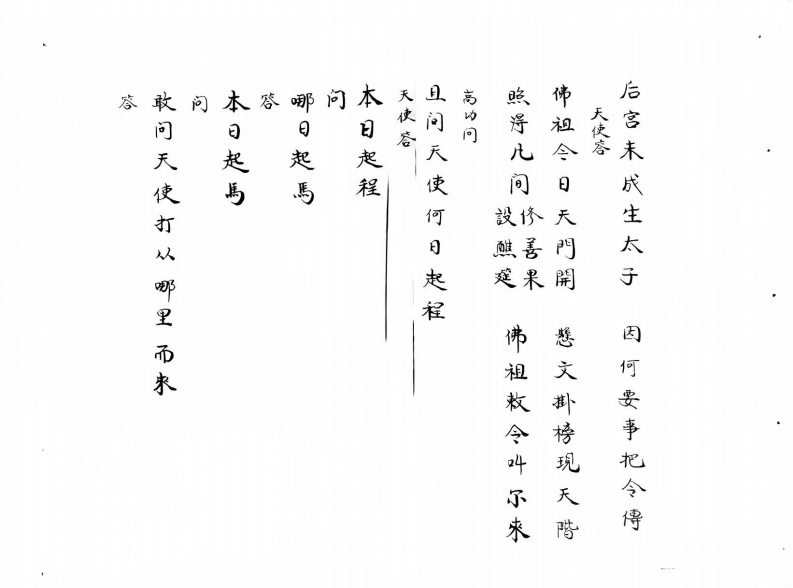 后宫未成生太子 因何要事把令傳
天使答
佛祖令日天門開 懸文掛榜現天階
照得凡间 修善果 設醮筵 佛祖敕令叫尔來
高功问
且问天使何日起程
天使答
本日起程
问
哪日起馬
答
本日起馬
问
敢问天使打从哪里而來
答